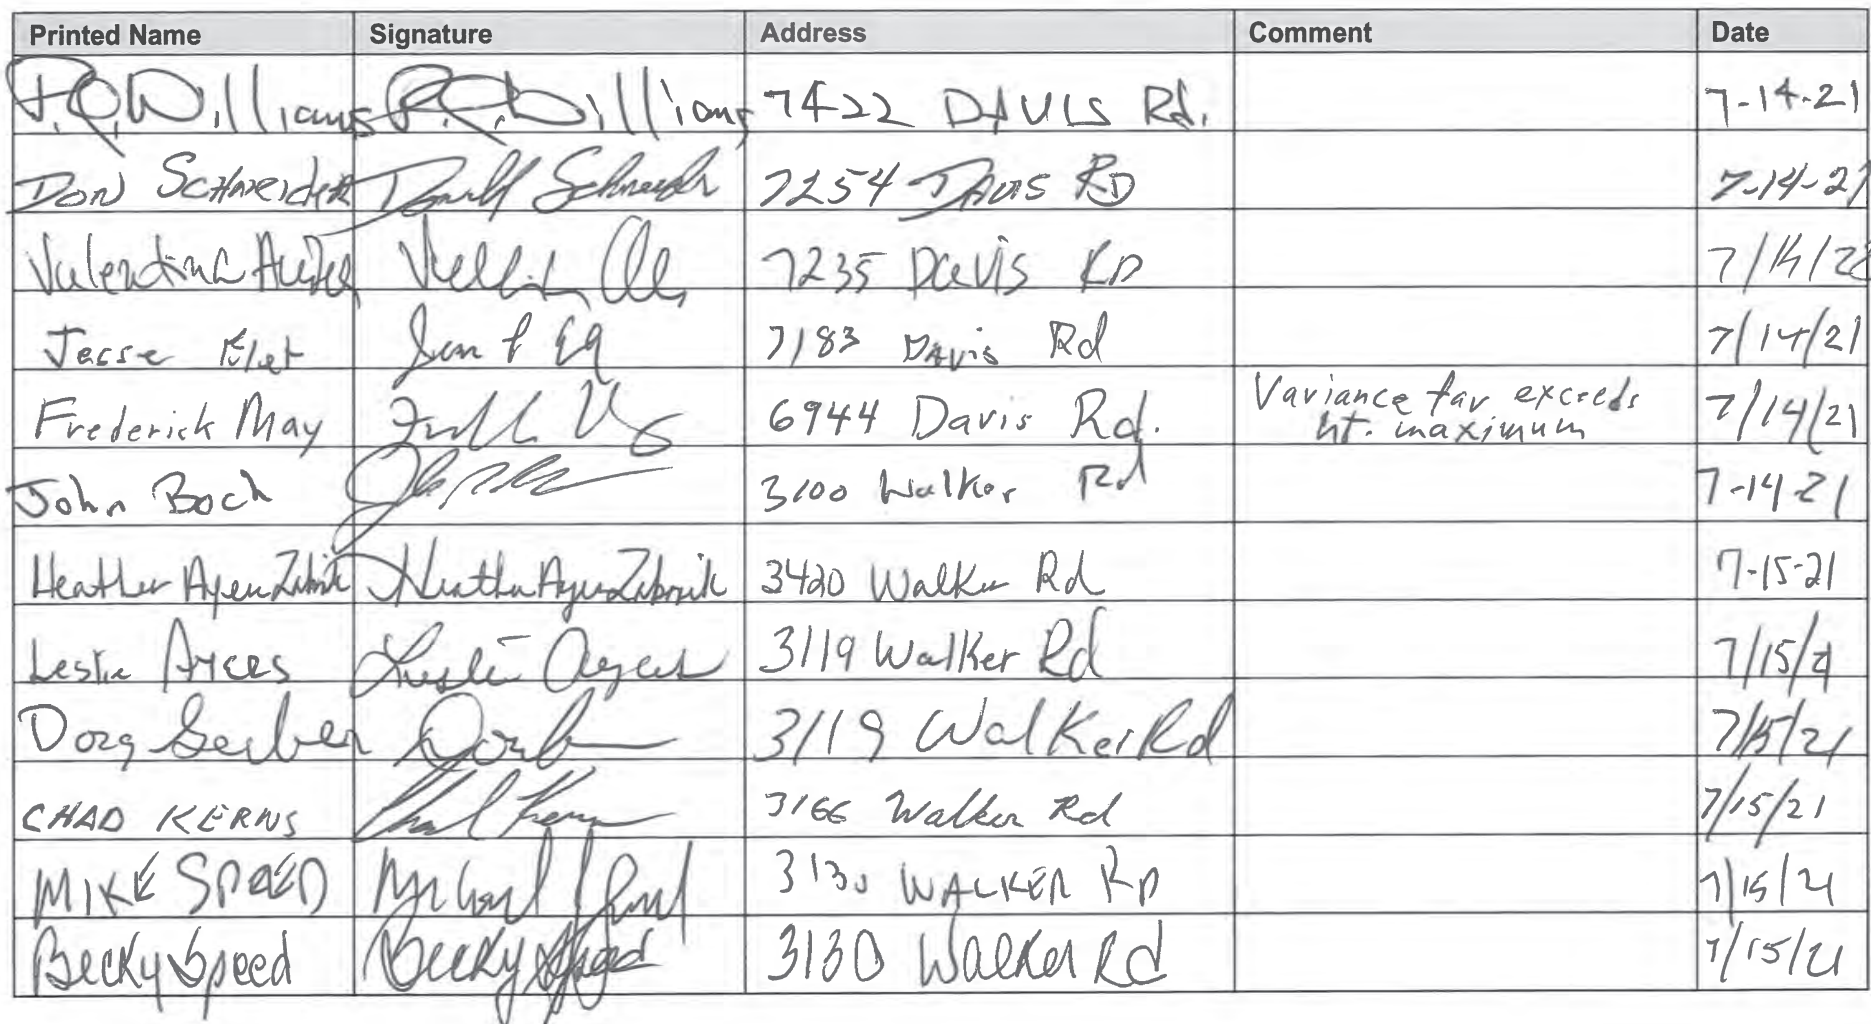 Printed Name Signature Address Comment Date
P.Q. Williams P.Q. Williams 7422 DAVIS Rd. 7-14-21
DON SCHNEIDER Donald Schneider 7254 DAVIS RD 7-14-21
Valentina 7235 DAVIS RD 7/14/21
Jesse 7183 DAVIS Rd 7/14/21
Frederick May 6944 Davis Rd. Variance far exceeds 7/14/21
ht. maximum
John Boch 3100 Walker Rd 7-14-21
Heather Ayers Zabnik Heather Ayers Zabnik 3420 Walker Rd 7-15-21
Leslie Ayres Leslie Ayres 3119 Walker Rd 7/15/21
Doug Gerber 3119 Walker Rd 7/15/21
CHAD KERNS Chad Kerns 3166 Walker Rd 7/15/21
MIKE SPEED Michael Speed 3130 WALKER RD 7/15/21
Becky Speed Becky Speed 3130 Walker Rd 7/15/21